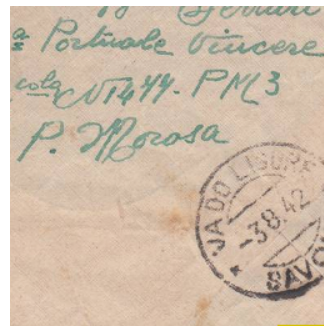 a Portuale Vincere
cola N 1477. PM3
P. Morosa
VADO LIGURE
-3.8.42
SAVO